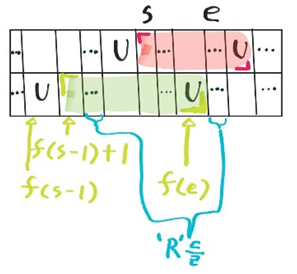 s e
... U ... ... U ...
... U ... U ... ...
f(s-1)+1
f(s-1) f(e)
'R'들